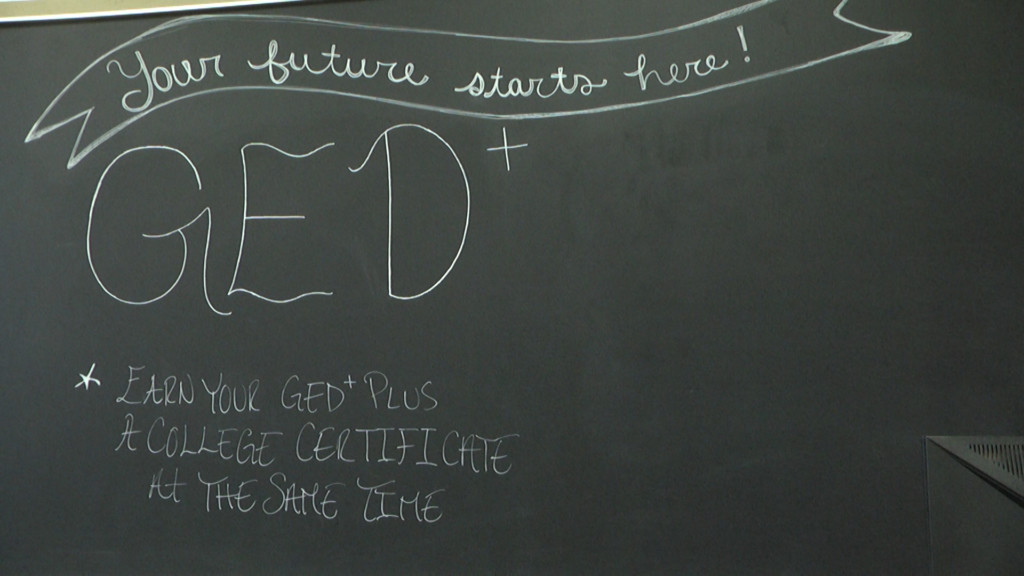 Your future starts here!
GED+
* EARN YOUR GED+ PLUS
A COLLEGE CERTIFICATE
At THE SAME TIME